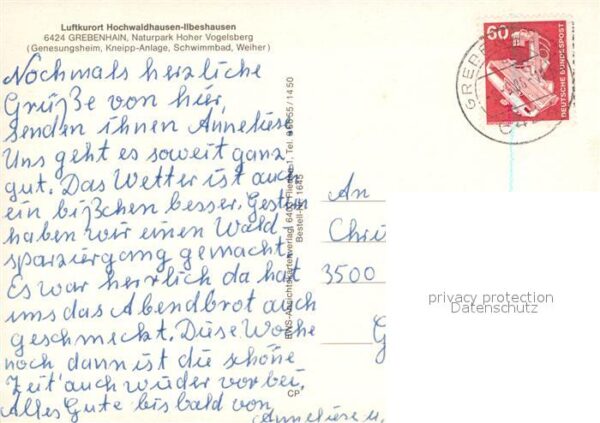 Luftkurort Hochwaldhausen-Ilbeshausen
6424 GREBENHAIN, Naturpark Hoher Vogelsberg
(Genesungsheim, Kneipp-Anlage, Schwimmbad, Weiher)
Nochmals herzliche
Grüße von hier,
senden ihnen Anneliese
Uns geht es soweit ganz
gut. Das Wetter ist auch
ein bißchen besser. Gestern
haben wir einen Wald
sparziergang gemacht.
Es war herrlich da hat
uns das Abendbrot auch
geschmeckt. Diese Woche
noch dann ist die schöne
Zeit auch wieder vorbei.
Alles Gute bis bald von
Anneliese u.
Bestell-Nr. 1645
CP
60
DEUTSCHE BUNDESPOST
An
3500
G
privacy protection
Datenschutz